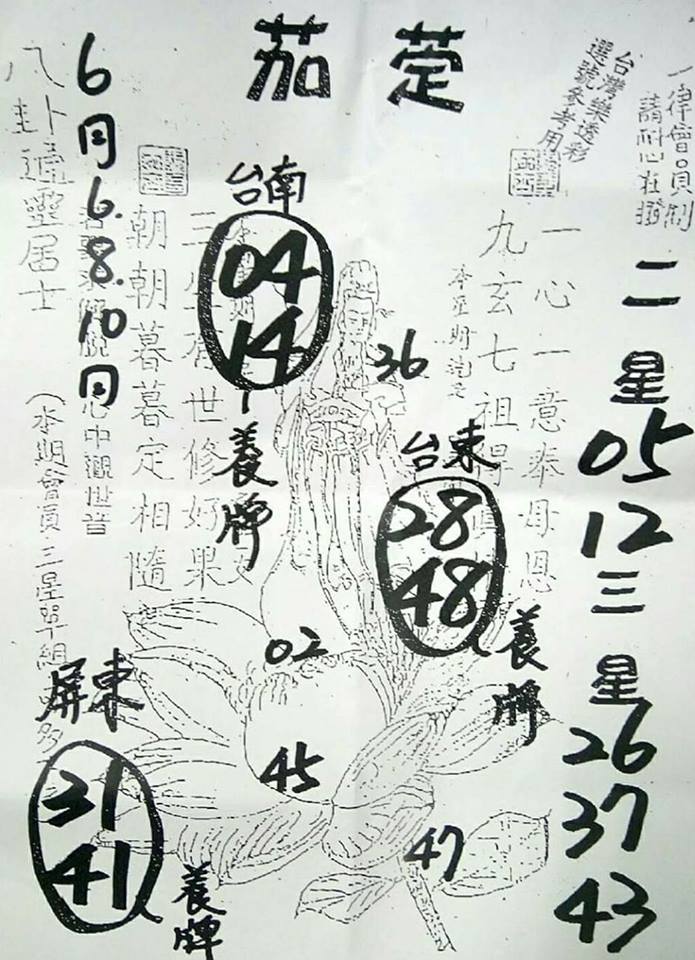 茄萣
台灣樂透彩
選號參考用
一律會員制
請耐心在撥
6月6.8.10日
八卦壇靈居士
台南
04
14
養牌
36
二星
05
12
三星
26
37
43
台東
28
48
養牌
02
45
47
屏東
31
41
養牌
一心一意奉母恩
九玄七祖得
世修好果
朝朝暮暮定相隨
心中觀世音
(本期會員三星單組